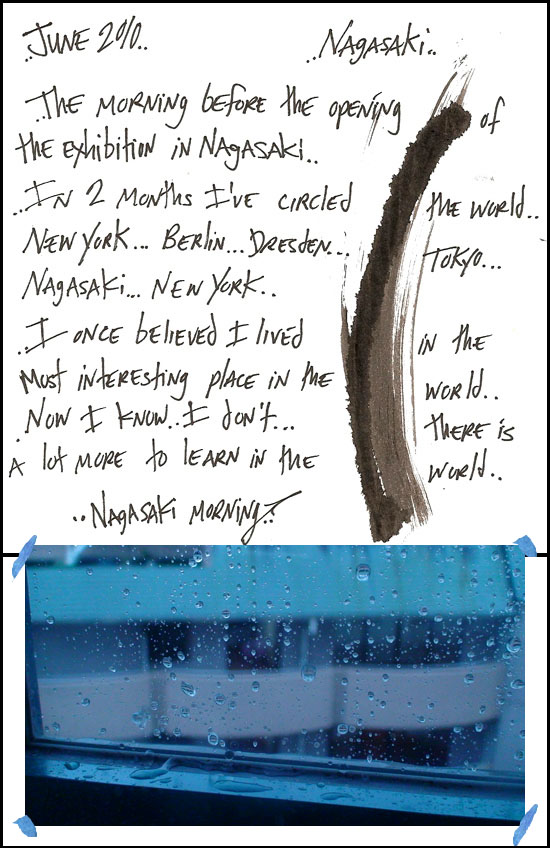 JUNE 2010..
..NAGASAKi..
..THE MORNiNg bEfORE thE OPENiNg of
thE Exhibition iN NAgASAKi..
..IN 2 MONTHs I'VE CiRCLEd the WORLd..
NEW YORK... BERLiN... DRESDEN... TOKYO...
NAgASAKi... NEW YORK..
..I ONCE bELiEVEd I LiVEd in the
Most intERESting PLACE iN the WORLd..
NOW I KNOW..I doN't... thERE is
A lot MORE to LEARN iN the WORLd..
..NAgASAKi MORNiNg..